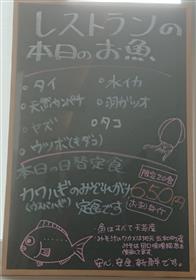 レストランの
本日のお魚
・タイ ・水イカ
・天然カンパチ ・羽ガツオ
・ヤズ ・タコ
・ウツボ(キダコ)
本日の日替定食
限定20食
カワハギのみぞれがけ
650円
定食です
魚はすべて天草産
安心、安全、新鮮です。